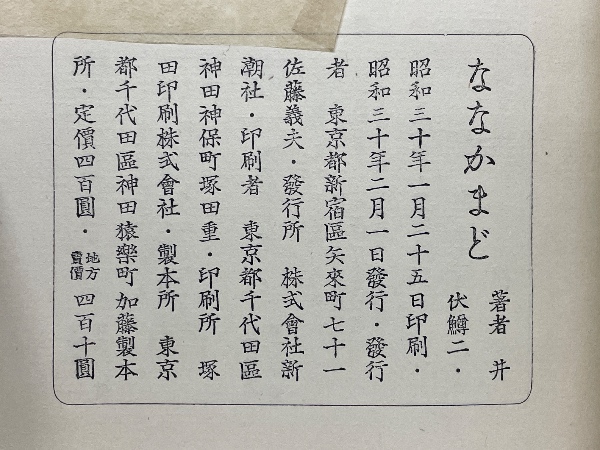 ななかまど
著者 井
伏鱒二・
昭和三十年一月二十五日印刷・
昭和三十年二月一日發行・發行
者 東京都新宿區矢來町七十一
佐藤義夫・發行所 株式會社新
潮社・印刷者 東京都千代田區
神田神保町塚田重・印刷所 塚
田印刷株式會社・製本所 東京
都千代田區神田猿樂町加藤製本
所・定價四百圓・地方賣價四百十圓